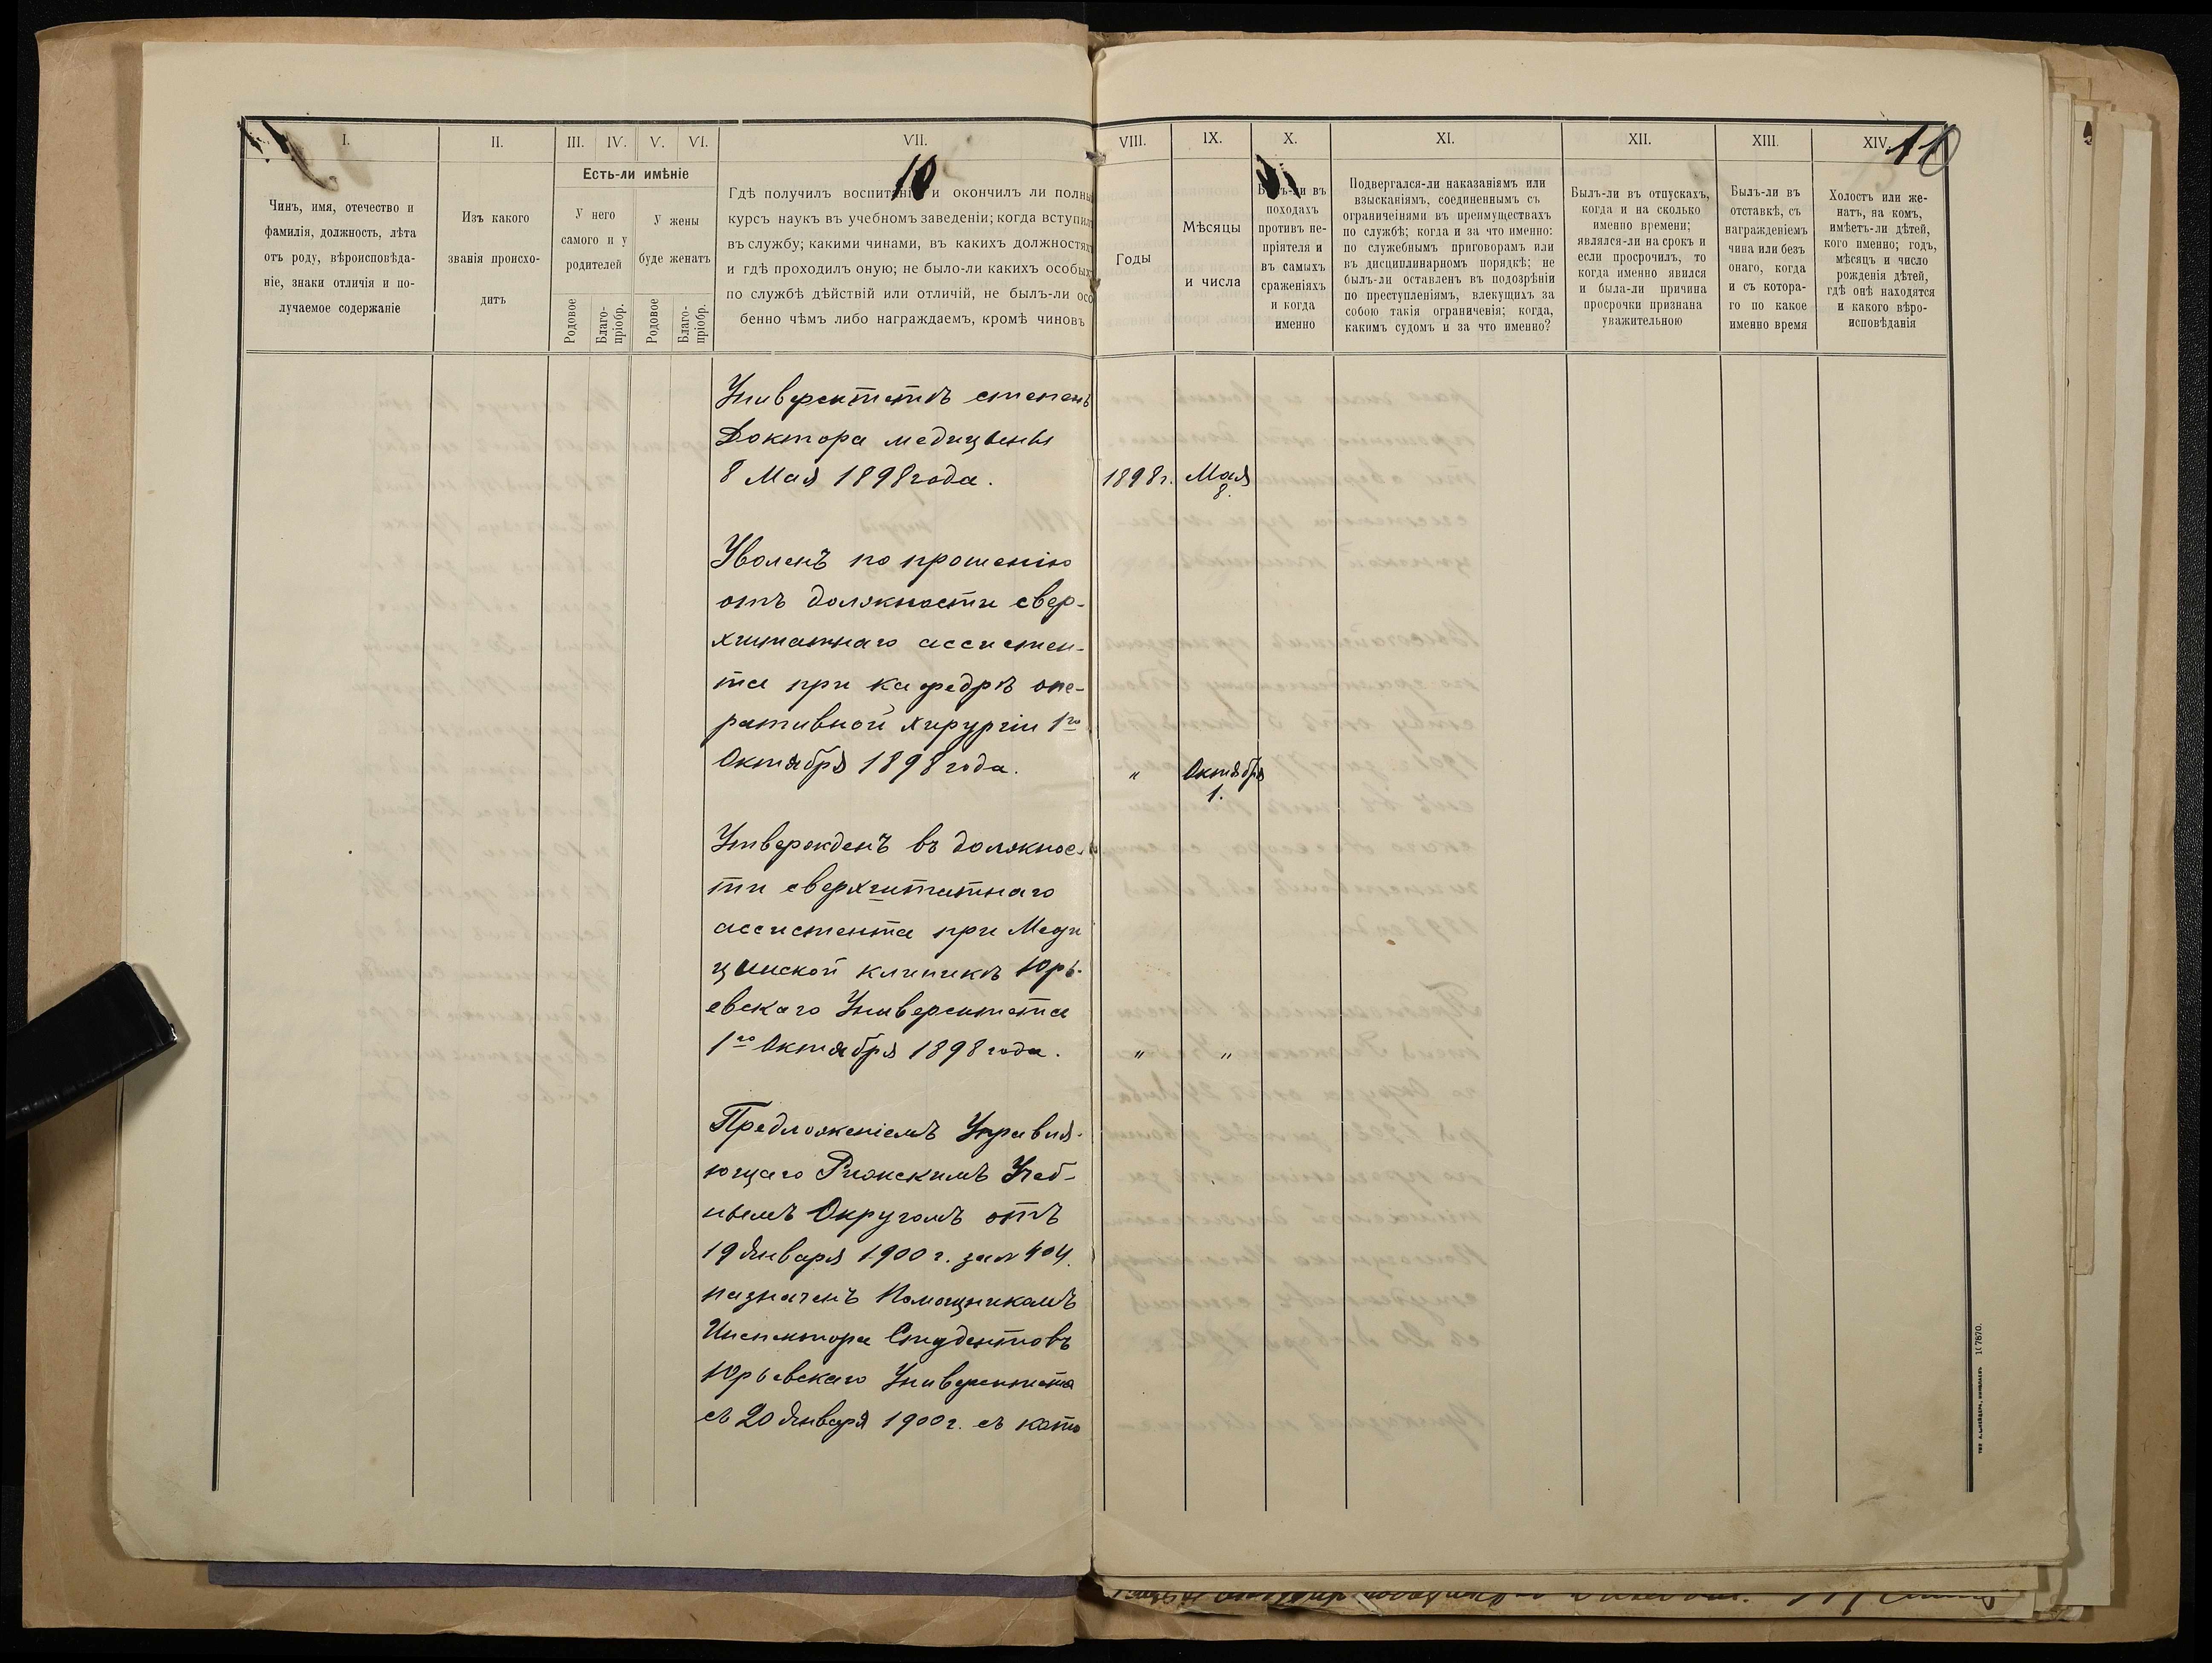 I.
II.
III.
IV.
V.
VI.
VII.
10
Есть-ли имѣніе
Чинъ, имя, отечество и
фамилія, должность, лѣта
отъ роду, вѣроисповѣда-
ніе, знаки отличія и по-
лучаемое содержаніе
Изъ какого
званія происхо-
дитъ
У него
самого и у
родителей
У жены
буде женатъ
Родовое
Благо-
пріобр.
Родовое
Благо-
пріобр.
Гдѣ получилъ воспитаніе и окончилъ ли полны
курсъ наукъ въ учебномъ заведеніи; когда вступил
въ службу; какими чинами, въ какихъ должностях
и гдѣ проходилъ оную; не было-ли какихъ особых
по службѣ дѣйствій или отличій, не былъ-ли осо
бенно чѣмъ либо награждаемъ, кромѣ чиновъ
VIII.
IX.
X.
XI.
XII.
XIII.
XIV.
11
Годы
Мѣсяцы
и числа
Былъ-ли въ
походахъ
противъ не-
пріятеля и
въ самыхъ
сраженіяхъ
и когда
именно
Подвергался-ли наказаніямъ или
взысканіямъ, соединеннымъ съ
ограниченіями въ преимуществахъ
по службѣ; когда и за что именно:
по служебнымъ приговорамъ или
въ дисциплинарномъ порядкѣ; не
былъ-ли оставленъ въ подозрѣніи
по преступленіямъ, влекущихъ за
собою такія ограниченія; когда,
какимъ судомъ и за что именно?
Былъ-ли въ отпускахъ,
когда и на сколько
именно времени;
являлся-ли на срокъ и
если просрочилъ, то
когда именно явился
и была-ли причина
просрочки признана
уважительною
Былъ-ли въ
отставкѣ, съ
награжденіемъ
чина или безъ
онаго, когда
и съ котора-
го по какое
именно время
Холостъ или же-
натъ, на комъ,
имѣетъ-ли дѣтей,
кого именно; годъ,
мѣсяцъ и число
рожденія дѣтей,
гдѣ онѣ находятся
и какого вѣро-
исповѣданія
Университетѣ степень
Доктора медицины
8 Мая 1898 года. 1898 г. Мая
8.
Уволенъ по прошенію
отъ должности свер-
хштатнаго ассистен-
та при кафедрѣ опе-
ративной хирургіи 1го
Октября 1898 года. " Октября
1.
Утвержденъ въ должнос-
ти сверхштатнаго
ассистента при Меди
цинской клиникѣ Юрь-
евскаго Университета
1го Октября 1898 года. " "
Предложеніемъ Управля-
ющаго Рижскимъ Учеб-
нымъ Округомъ отъ
19 Января 1900 г. за № 404.
назначенъ Помощникомъ
Инспектора Студентовъ
Юрьевскаго Университета
съ 20 Января 1900 г. съ кото